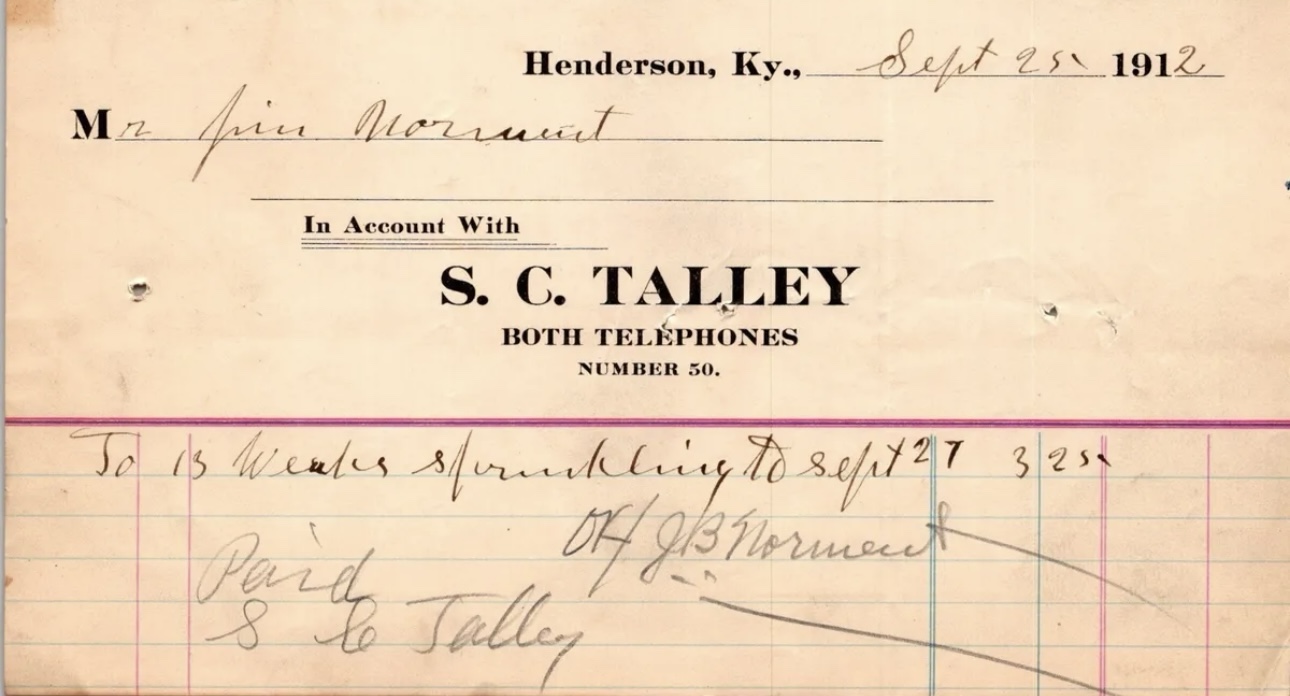 Henderson, Ky., Sept 25 1912
Mr Jim Norment
In Account With
S. C. TALLEY
BOTH TELEPHONES
NUMBER 50.
To 13 Weeks sprinkling to sept 27 3 25
OK J B Norment
Paid
S C Talley